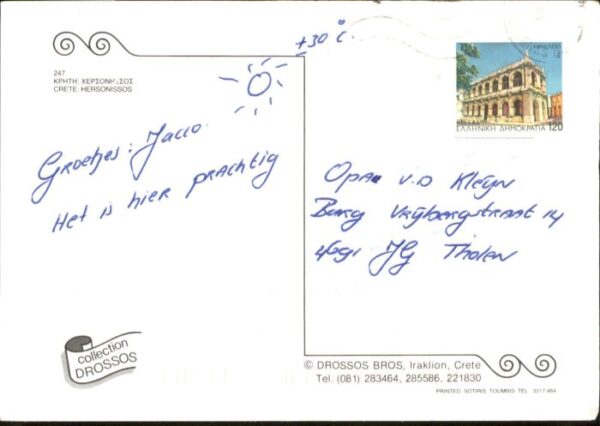 +30°C.
247
ΚΡΗΤΗ: ΧΕΡΣΟΝΗΣΟΣ
CRETE: HERSONISSOS
Groetjes: Jacco.
Het is hier prachtig
ΕΛΛΗΝΙΚΗ ΔΗΜΟΚΡΑΤΙΑ 120
Opa v.d Kleyn
Burg Vrijbergstraat 14
4691 JG Tholen
collection
DROSSOS
© DROSSOS BROS, Iraklion, Crete
Tel. (081) 283464, 285586, 221830
PRINTED SOTIRIS TOUMBIS TEL. 3217-864